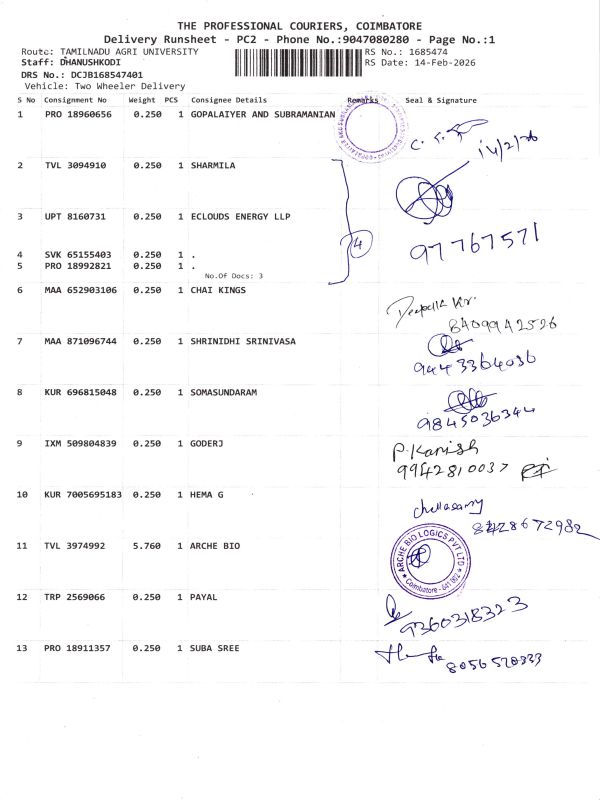 THE PROFESSIONAL COURIERS, COIMBATORE
Delivery Runsheet - PC2 - Phone No.:9047080280 - Page No.:1
Route: TAMILNADU AGRI UNIVERSITY RS No.: 1685474
Staff: DHANUSHKODI RS Date: 14-Feb-2026
DRS No.: DCJB168547401
Vehicle: Two Wheeler Delivery
S No Consignment No Weight PCS Consignee Details Remarks Seal & Signature
1 PRO 18960656 0.250 1 GOPALAIYER AND SUBRAMANIAN
14/2/26
2 TVL 3094910 0.250 1 SHARMILA
3 UPT 8160731 0.250 1 ECLOUDS ENERGY LLP
4
97767571
4 SVK 65155403 0.250 1 .
5 PRO 18992821 0.250 1 .
No.Of Docs: 3
6 MAA 652903106 0.250 1 CHAI KINGS
8409942526
7 MAA 871096744 0.250 1 SHRINIDHI SRINIVASA
9443364036
8 KUR 696815048 0.250 1 SOMASUNDARAM
9845036344
9 IXM 509804839 0.250 1 GODERJ
P. Kanish
9942810037
10 KUR 7005695183 0.250 1 HEMA G
chellasamy
8428672982
11 TVL 3974992 5.760 1 ARCHE BIO
ARCHE BIO LOGICS PVT LTD
Coimbatore - 641 002
12 TRP 2569066 0.250 1 PAYAL
9360318323
13 PRO 18911357 0.250 1 SUBA SREE
8056520333